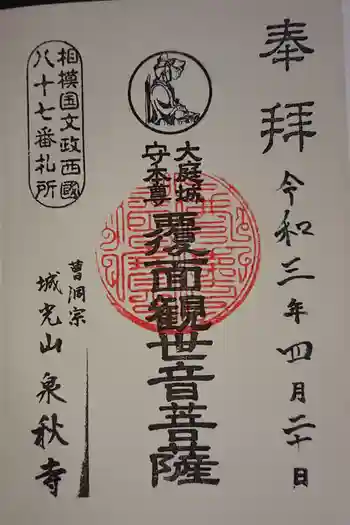 奉拝
令和三年四月二十日
大庭城
守本尊
覆面観世音菩薩
相模国文政西國
八十七番札所
曹洞宗
城光山泉秋寺